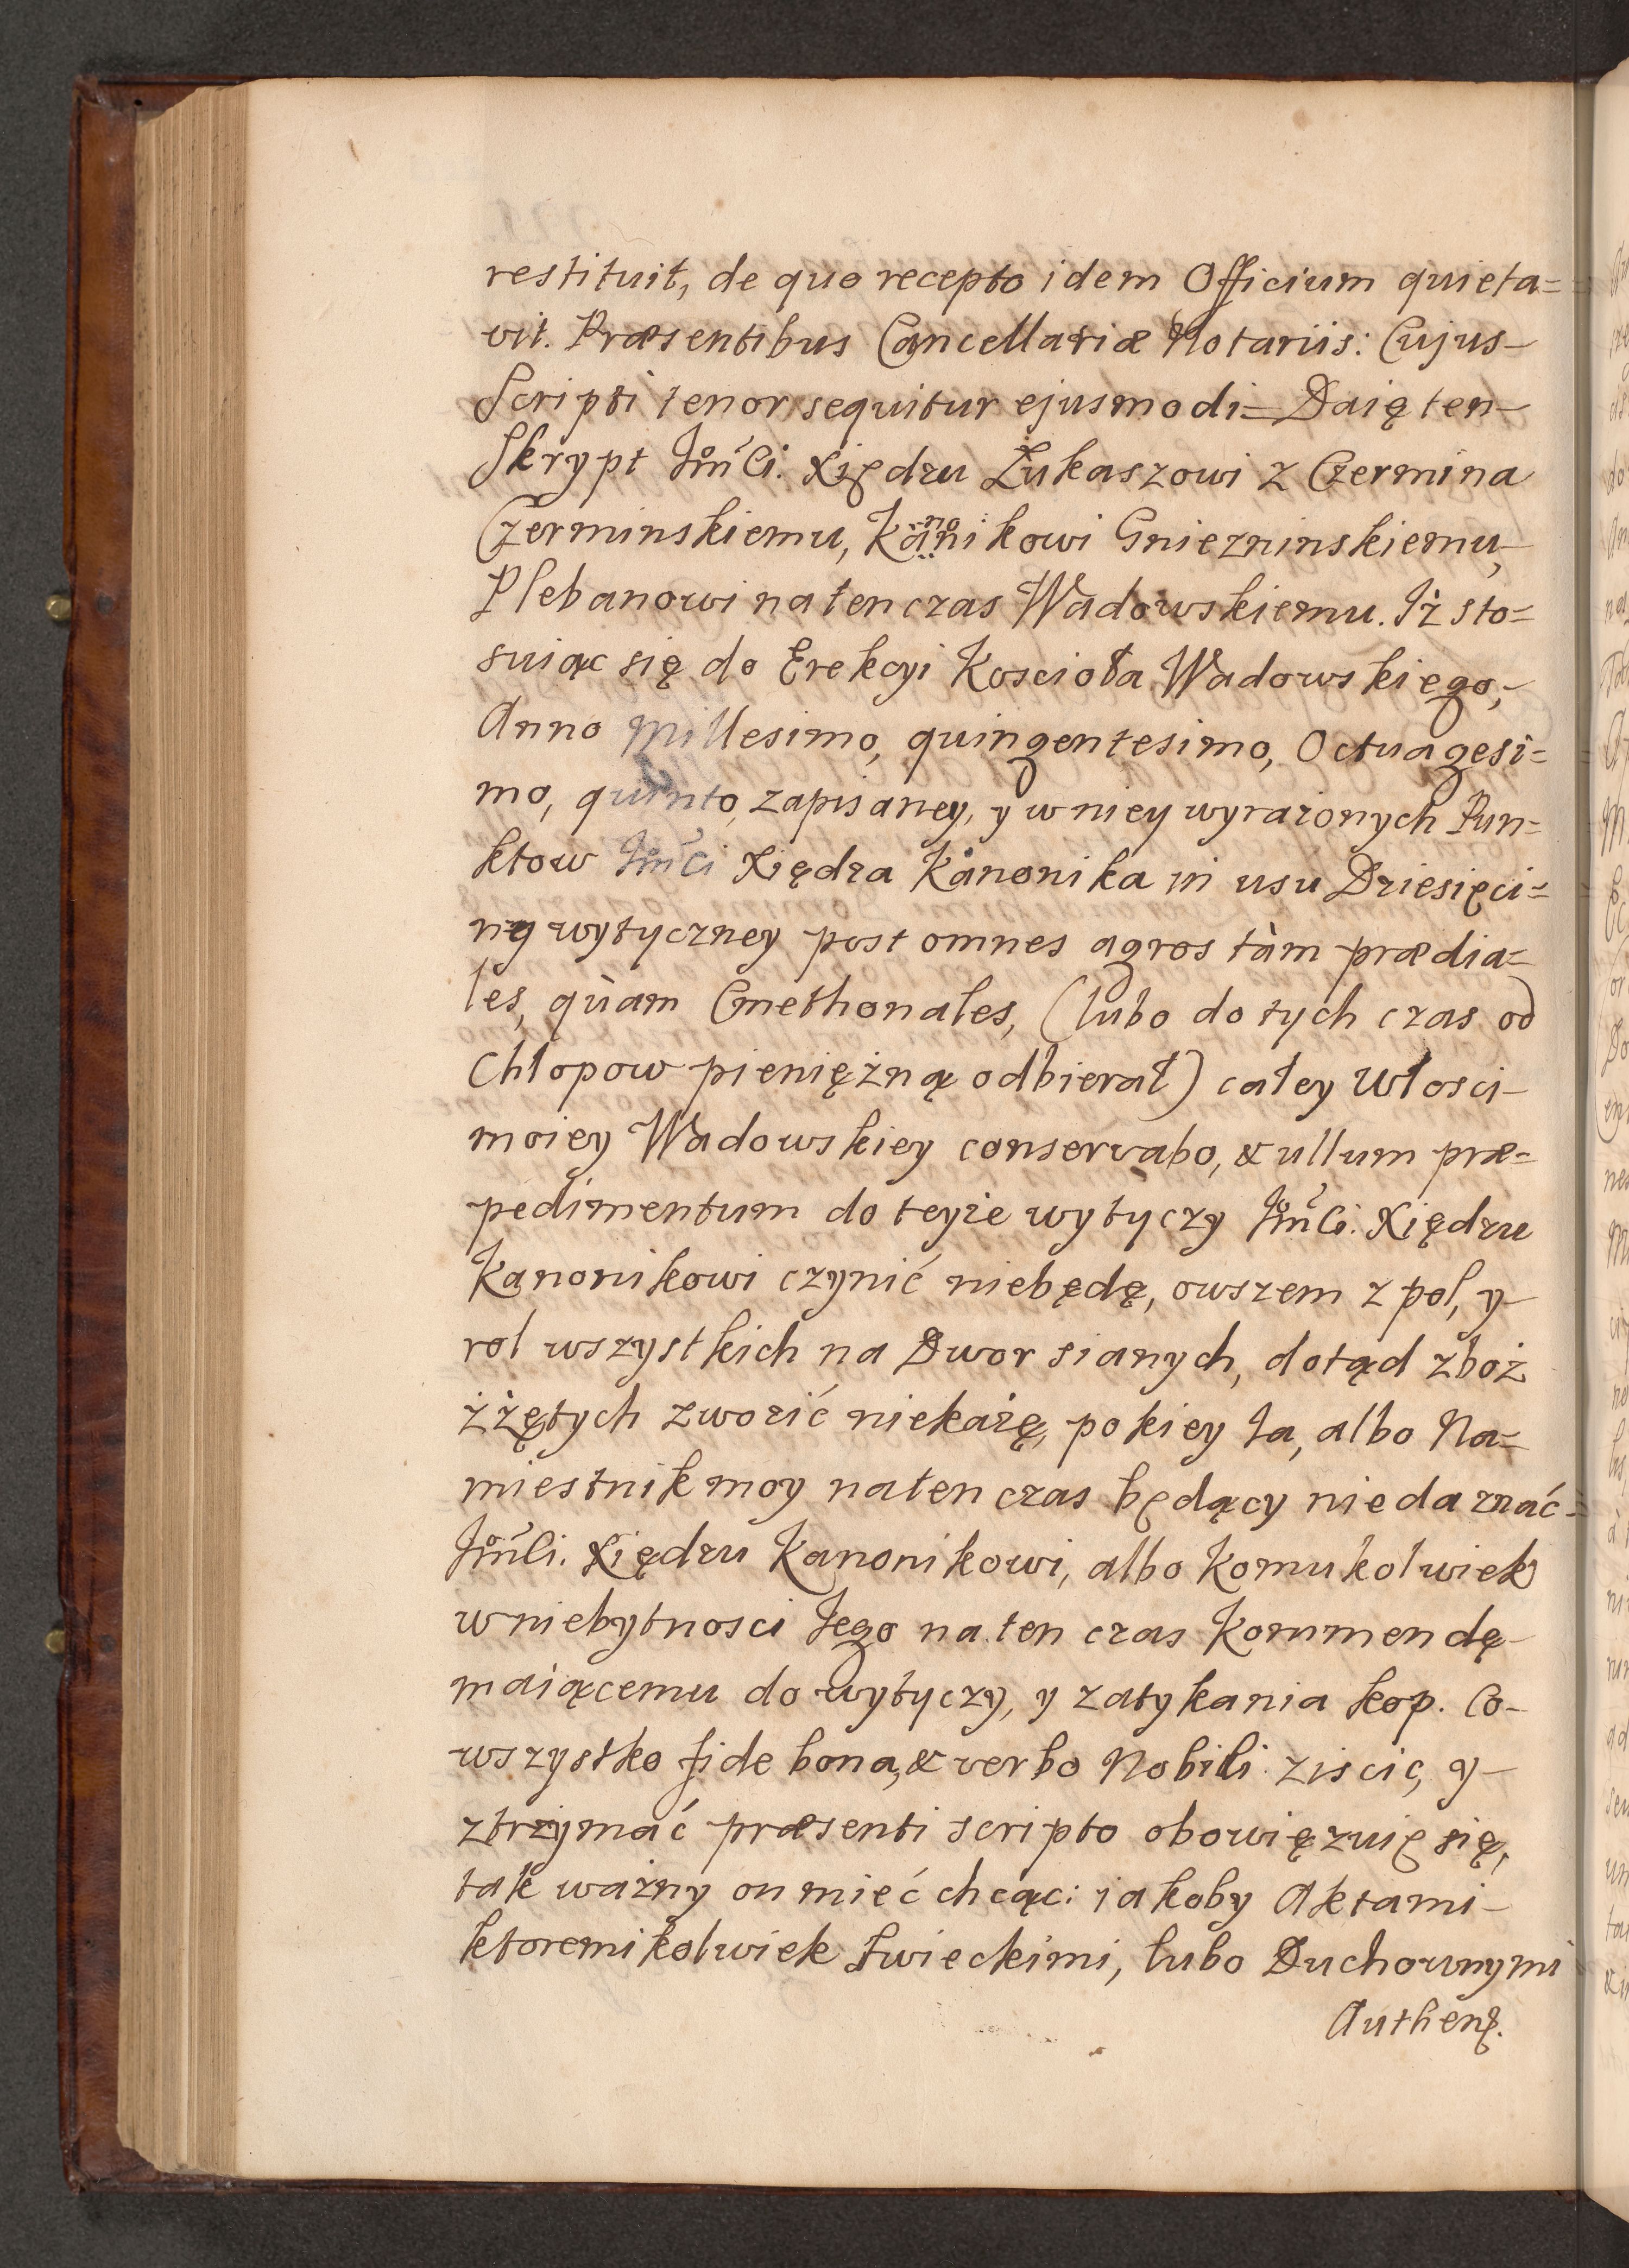 restituit, de quo recepto idem Officium quieta=
vit. Præsentibus Cancellariæ Notariis: Cujus
Scripti tenor sequitur ejusmodi= Daię ten
Skrypt Jm̃Ci. Xiędzu Łukaszowi z Czermina
Czerminskiemu, Kanonikowi Gniezninskiemu,
Plebanowi natenczas Wadowskiemu. Iż sto=
suiąc się do Erekcyi Koscioła Wadowskiego,
Anno Millesimo, quingentesimo, Octuagesi=
mo, quinto, zapisaney, y w niey wyrażonych Pun=
ktow Jm̃Ci Xiędza Kanonika in usu Dziesięci=
ny wytyczney post omnes agros tàm prædia=
les, quàm Cmethonales, (lubo do tych czas od
Chłopow pieniężną odbierał) całey Włosci
moiey Wadowskiey conservabo, & ullum præ=
pedimentum do teyże wytyczy Jm̃Ci. Xiędzu
Kanonikowi czynić niebędę, owszem z pol, y
rol wszystkich na Dwor sianych, dotąd zboż
zżętych zwozić niekażę, pokiey Ja, albo Na=
miestnik moy natenczas będący nie da znać
Jm̃Ci. Xiędzu Kanonikowi, albo komukolwiek
w niebytnosci Jego na ten czas Kommendę
maiącemu do wytyczy, y zatykania kop. Co
wszystko fide bona, & verbo Nobili ziscic, y
ztrzymać præsenti scripto obowięzuię się,
tak ważny on mieć chcąc: iakoby Aktami
ktoremikolwiek Swieckimi, lubo Duchownymi
Authent.